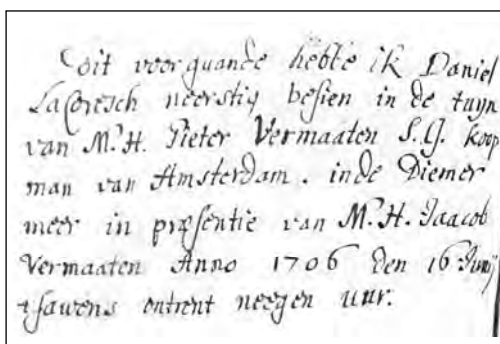 dit voorguande hebbe ik Daniel
La Coresch neerstig besien in de tuyn
van M.r H. Pieter Vermaaten S.G. koop
man van Amsterdam. inde Diemer
meer in præsentie van M.r H. Jaacob
Vermaaten Anno 1706 den 16 Junij
tsawens ontrent neegen uur.